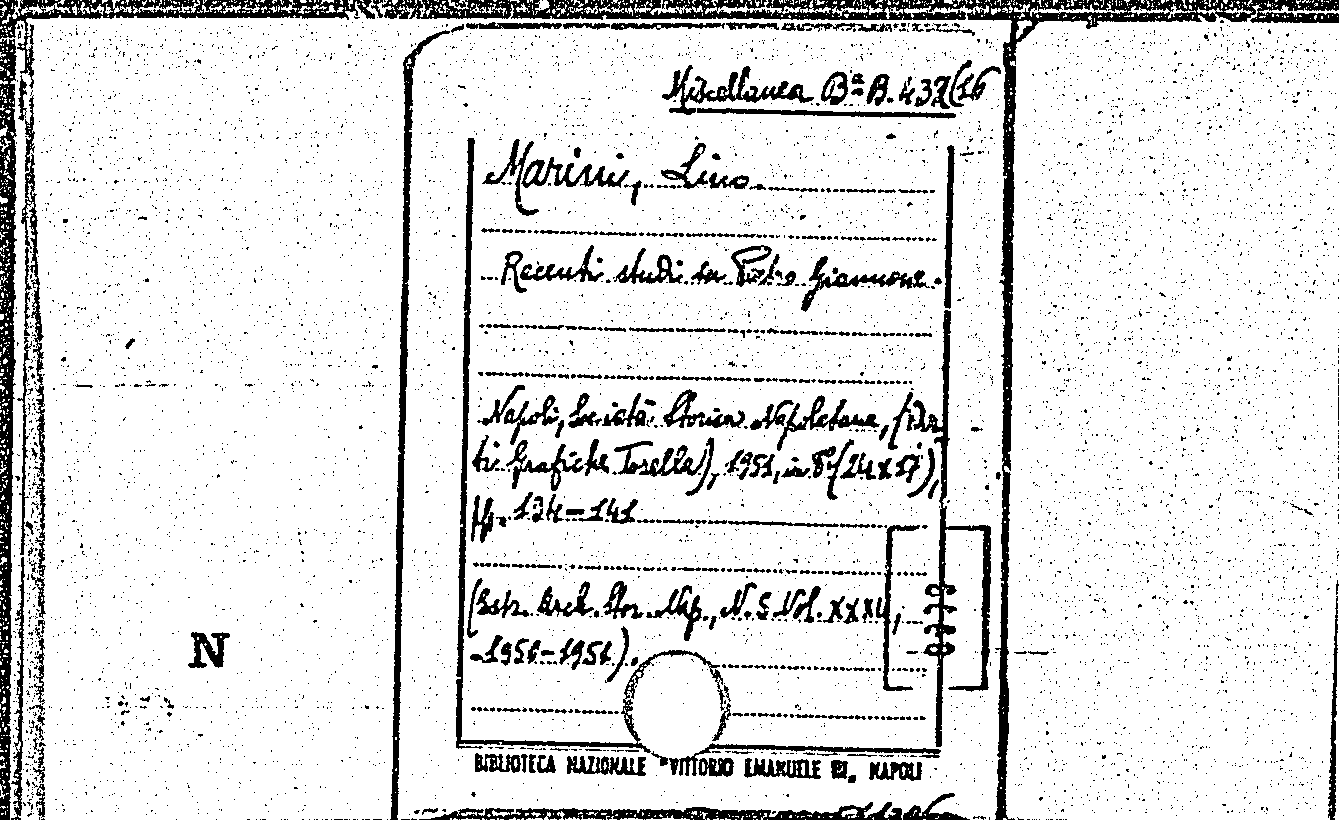 Miscellanea Bª B. 432(16
Marini, Lino.
Recenti studi su Pietro Giannone.
Napoli, Società Storica Napoletana, (Ar
ti Grafiche Torella), 1951, in 8º (24x17),
pp. 134-141
(Estr. Arch. Stor. Nap., N. S. Vol. XXXI,
N
BIBLIOTECA NAZIONALE "VITTORIO EMANUELE III„ NAPOLI